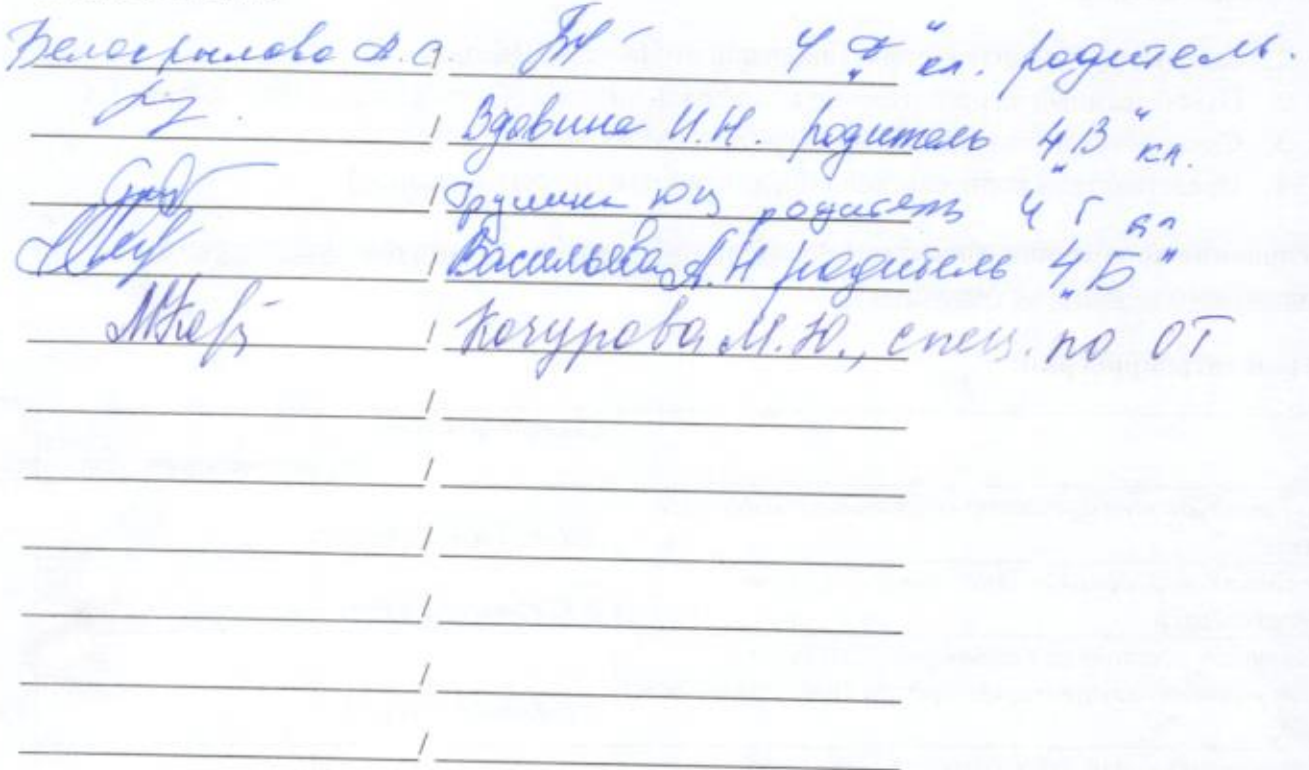 Белокрылова А.С / 4 "Д" кл. родитель.
/ Вдовина И.Н. родитель 4 "В" кл.
/ родитель 4 "Г" кл
/ Васильева А.Н родитель 4 "Б"
/ Кочурова М.Ю., спец. по ОТ
/
/
/
/
/
/